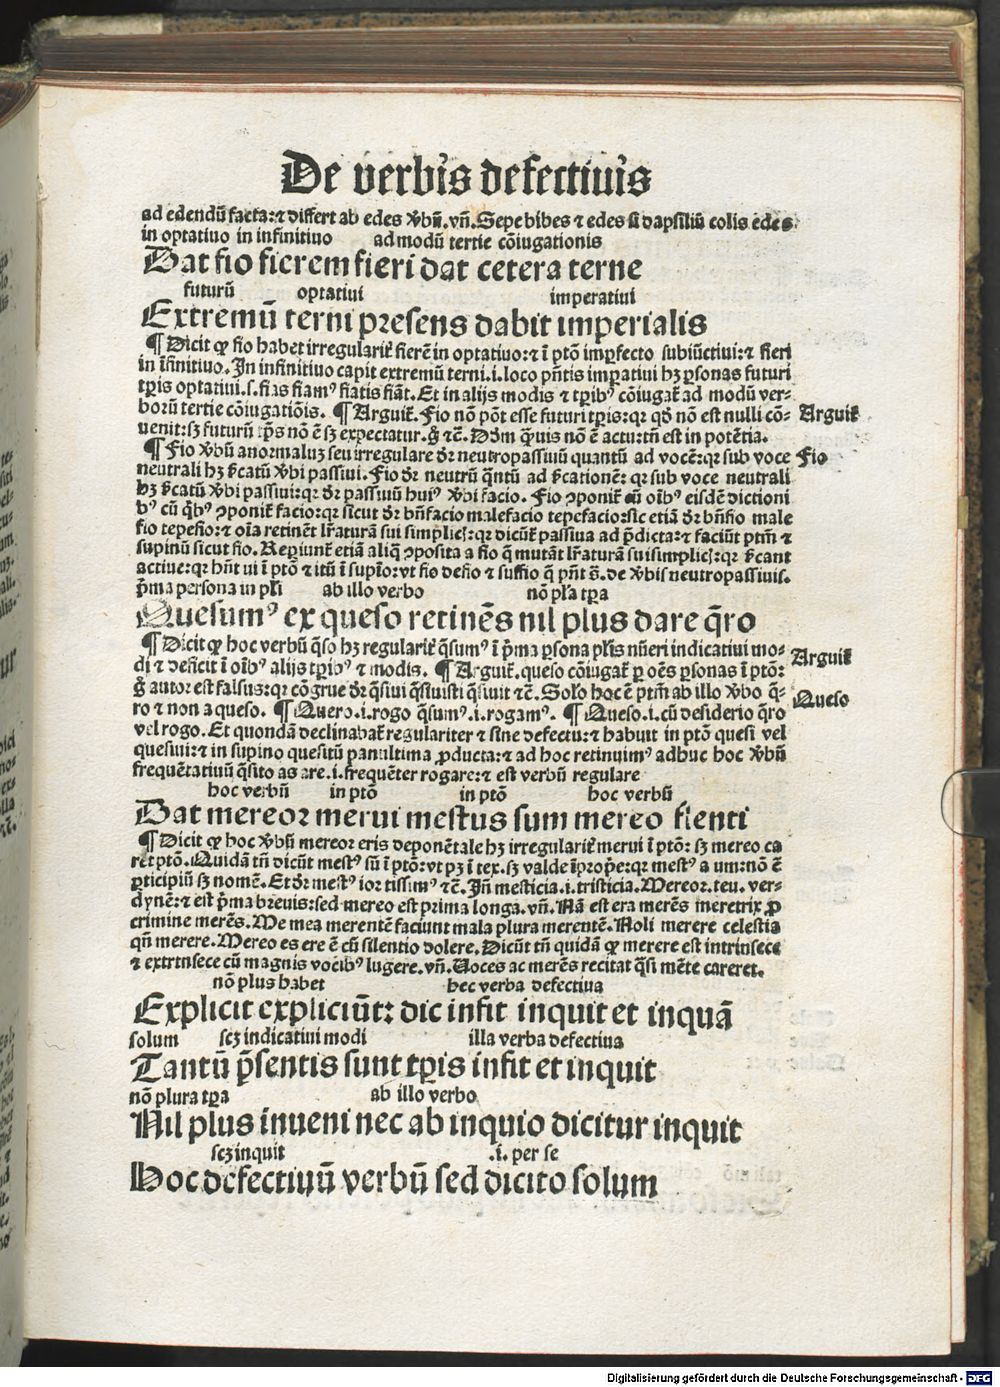 De verbis defectiuis
ad edendū facta:⁊ differt ab edes v̄bū.vn̄.Sepe bibes ⁊ edes si dapsiliū colis edes.
in optatiuo in infinitiuo ad modū tertie cōiugationis
Dat fio fierem fieri dat cetera terne
futurū optatiui imperatiui
Extremū terni presens dabit imperialis
¶ Dicit ꝙ fio habet irregularit̄ fierē in optatiuo:⁊ ī ptō imꝑfecto subiūctiui:⁊ fieri
in īfinitiuo. In infinitiuo capit extremū terni.i.loco pn̄tis imꝑatiui hꝫ ꝑsonas futuri
tꝑis optatiui.s.fias fiamꝰ fiatis fiāt. Et in alijs modis ⁊ tꝑibꝰ cōiugat̄ ad modū ver-
borū tertie cōiugatiōis. ¶ Arguit̄. Fio nō pōt esse futuri tꝑis:qꝛ qd̄ nō est nulli cō- Arguit̄
uenit:sꝫ futurū tp̄s nō ē sꝫ expectatur.g̊ ⁊c̄. Dd̄m ꝙuis nō ē actu:tn̄ est in potētia.
¶ Fio v̄bū anormaluꝫ seu irregulare dr̄ neutropassiuū quantū ad vocē:qꝛ sub voce Fio
neutrali hꝫ s̄catū v̄bi passiui. Fio dr̄ neutrū q̄ntū ad s̄cationē: qꝛ sub voce neutrali
hꝫ s̄catū v̄bi passiui:qꝛ dr̄ passiuū huiꝰ v̄bi facio. Fio ꝯponit̄ cū oībꝰ eisdē dictioni
bꝰ cū q̄bꝰ ꝯponit̄ facio:qꝛ sicut dr̄ bn̄facio malefacio tepefacio:sic etiā dr̄ bn̄fio male
fio tepefio:⁊ oīa retinēt lr̄aturā sui simplicꝭ:qꝛ dicūt̄ passiua ad p̄dicta:⁊ faciūt ptm̄ ⁊
supinū sicut fio. Reꝑiunt̄ etiā aliq̄ ꝯposita a fio q̄ mutāt lr̄aturā sui simplicꝭ:qꝛ s̄cant
actiue:qꝛ hn̄t ui ī ptō ⁊ itū ī supīo:vt fio defio ⁊ suffio q̄ pn̄t s̄.de v̄bis neutropassiuis.
p̄ma persona in pl̄i ab illo verbo nō pl̄a tꝑa
Quesumꝰ ex queso retinēs nil plus dare q̄ro
¶ Dicit ꝙ hoc verbū q̄so hꝫ regularit̄ q̄sumꝰ ī p̄ma ꝑsona pl̄is nūeri indicatiui mo- Arguit̄
di ⁊ deficit ī oībꝰ alijs tꝑibꝰ ⁊ modis. ¶ Arguit̄.queso cōiugat̄ ꝑ oēs ꝑsonas ī ptō:
g̊ autor est falsus:qꝛ cōgrue dr̄ q̄siui q̄siuisti q̄siuit ⁊c̄. Solo hoc ē ptm̄ ab illo v̄bo q̄- Queso
ro ⁊ non a queso. ¶ Quero.i.rogo q̄sumꝰ.i.rogamꝰ. ¶ Queso.i.cū desiderio q̄ro
vel rogo. Et quondā declinabat̄ regulariter ⁊ sine defectu:⁊ habuit in ptō quesi vel
quesiui:⁊ in supino quesitū penultima ꝓducta:⁊ ad hoc retinuimꝰ adhuc hoc v̄bū
frequētatiuū q̄sito as are.i.frequēter rogare:⁊ est verbū regulare
hoc verbū in ptō in ptō hoc verbū
Dat mereor merui mestus sum mereo fienti
¶ Dicit ꝙ hoc v̄bū mereor eris deponētale hꝫ irregularit̄ merui ī ptō: sꝫ mereo ca
ret ptō. Quidā tn̄ dicūt mestꝰ sū ī ptō:vt pꝫ ī tex.sꝫ valde īprop̄e:qꝛ mestꝰ a um:nō ē
ꝑticipiū sꝫ nomē. Et dr̄ mestꝰ ior tissimꝰ ⁊c̄. Jn̄ mesticia.i.tristicia. Mereor.teu. ver-
dynē:⁊ est p̄ma breuis:sed mereo est prima longa.vn̄. Nā est era merēs meretrix ꝓ
crimine merēs. Me mea merentē faciunt mala plura merentē. Noli merere celestia
qn̄ merere. Mereo es ere ē cū silentio dolere. Dicūt tn̄ quidā ꝙ merere est intrinsece
⁊ extrinsece cū magnis vocibꝰ lugere.vn̄. Voces ac merēs recitat q̄si mēte careret.
nō plus habet hec verba defectiua
Explicit expliciūt: dic infit inquit et inquā
solum scꝫ indicatiui modi illa verba defectiua
Tantū p̄sentis sunt tꝑis infit et inquit
nō plura tꝑa ab illo verbo
Nil plus inueni nec ab inquio dicitur inquit
scꝫ inquit .i. per se
Hoc defectiuū verbū sed dicito solum
Digitalisierung gefördert durch die Deutsche Forschungsgemeinschaft - DFG